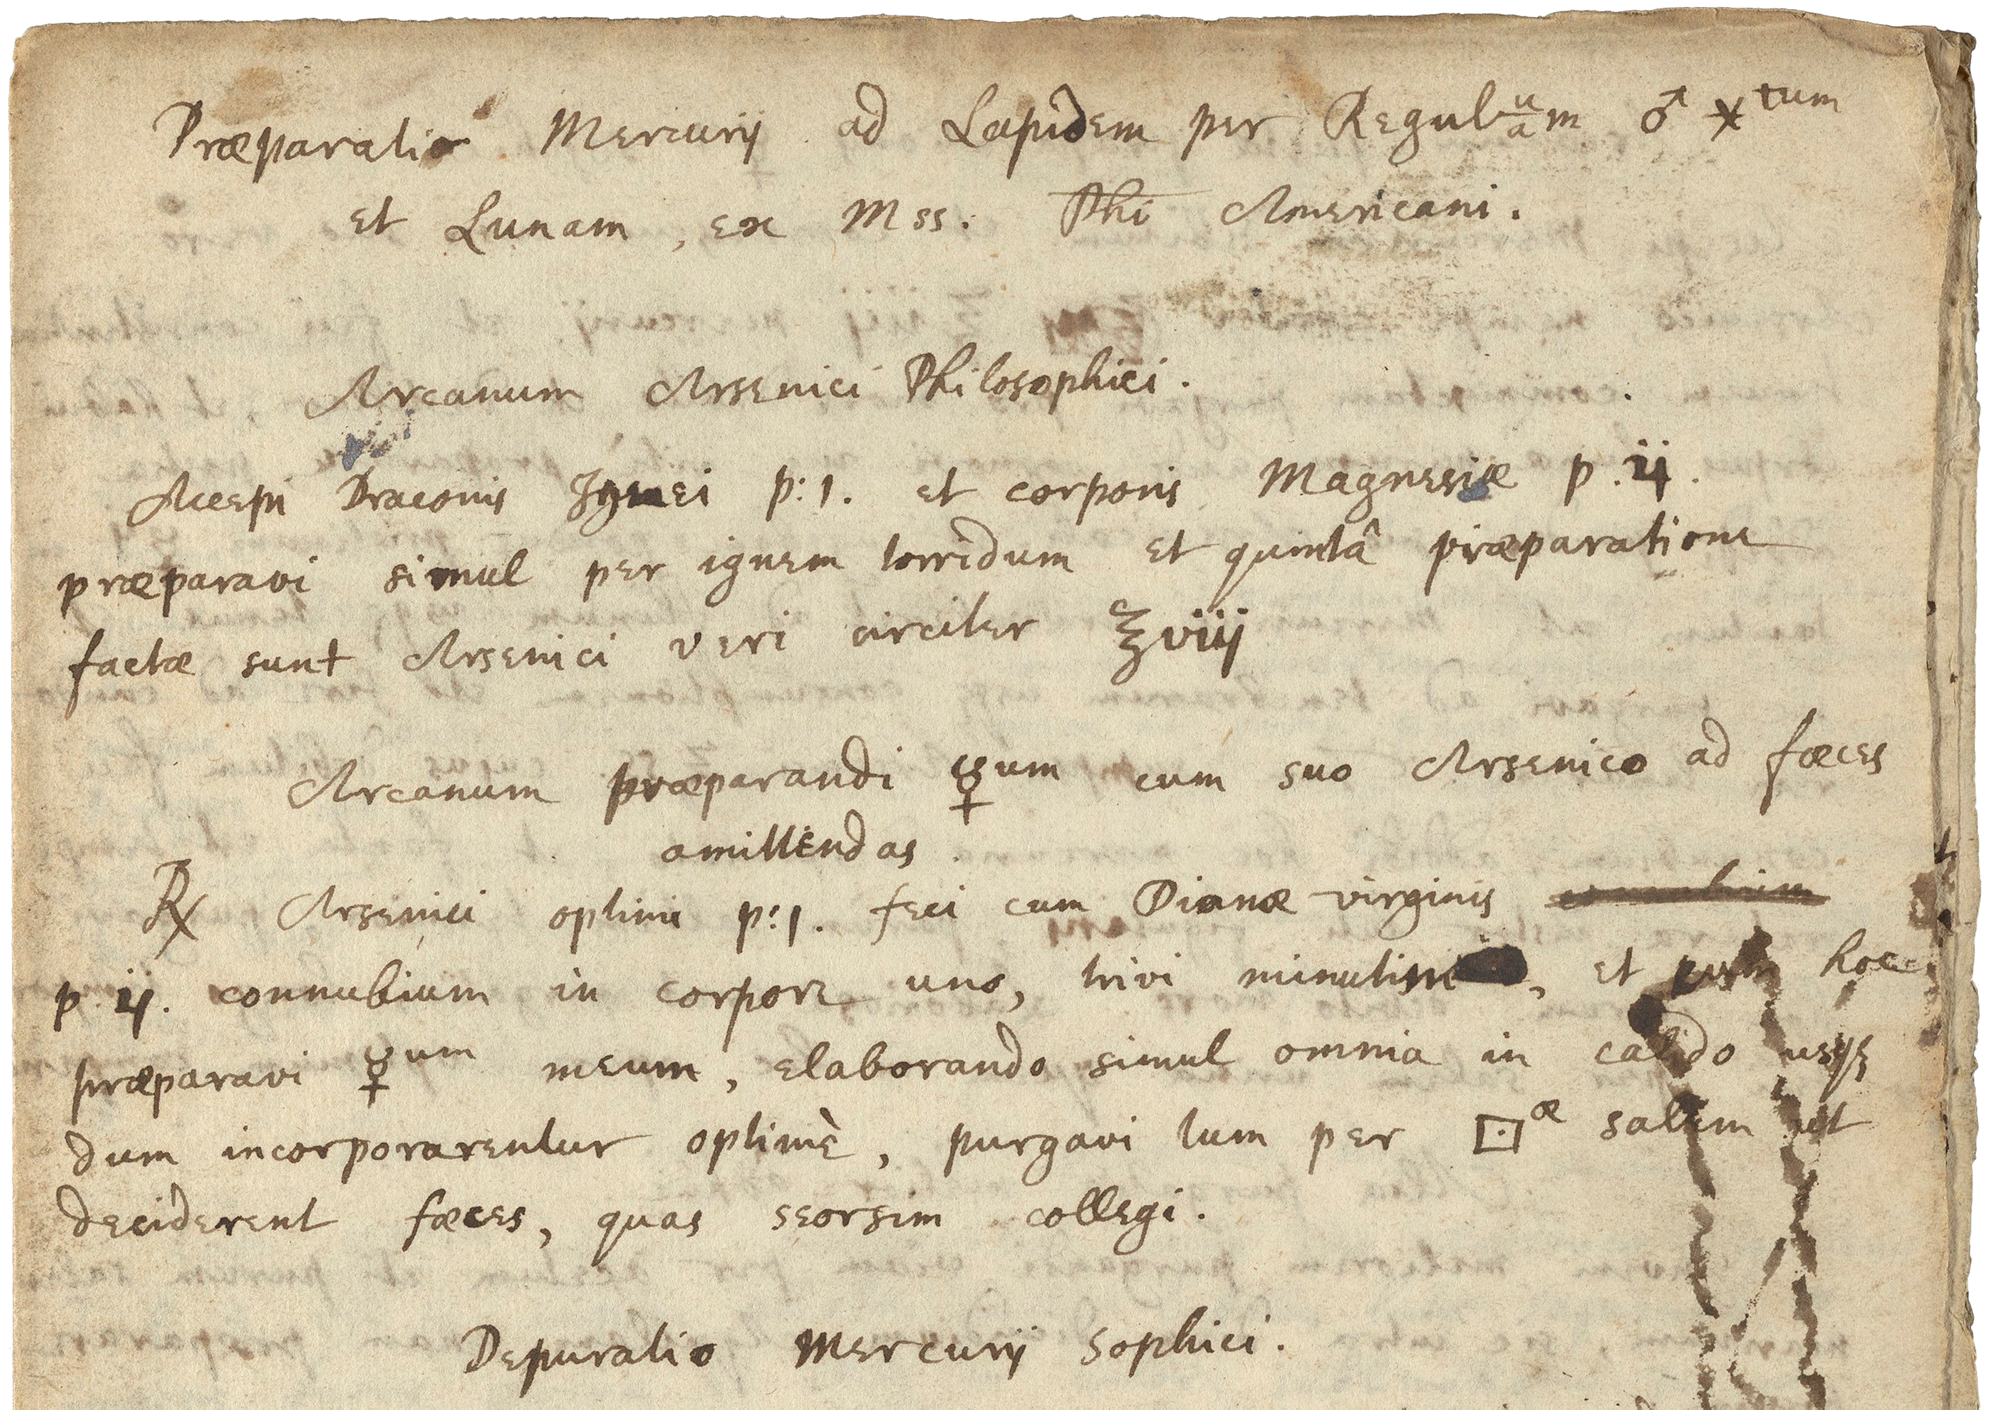 Præparatio Mercurij ad Lapidem per Regulum ♂ ⚹tum
et Lunam, ex Mss. Phi Americani.
Arcanum Arsenici Philosophici.
Accepi Draconis Ignei p: 1. et corporis Magnesiæ p. ij.
præparavi simul per ignem torridum et quintâ præparatione
factæ sunt Arsenici veri circiter ℥viij
Arcanum præparandi ☿um cum suo Arsenico ad fæces
amittendas.
℞ Arsenici optimi p: 1. feci cum Dianæ virginis connubium
p. ij. connubium in corpore uno, trivi et cum hoc
præparavi ☿um meum, elaborando simul omnia in calido usqꝫ
dum incorporarentur optimè, purgavi tum per ⊡æ salem ut
deciderent fæces, quas seorsim collegi.
Depuratio Mercurij Sophici.